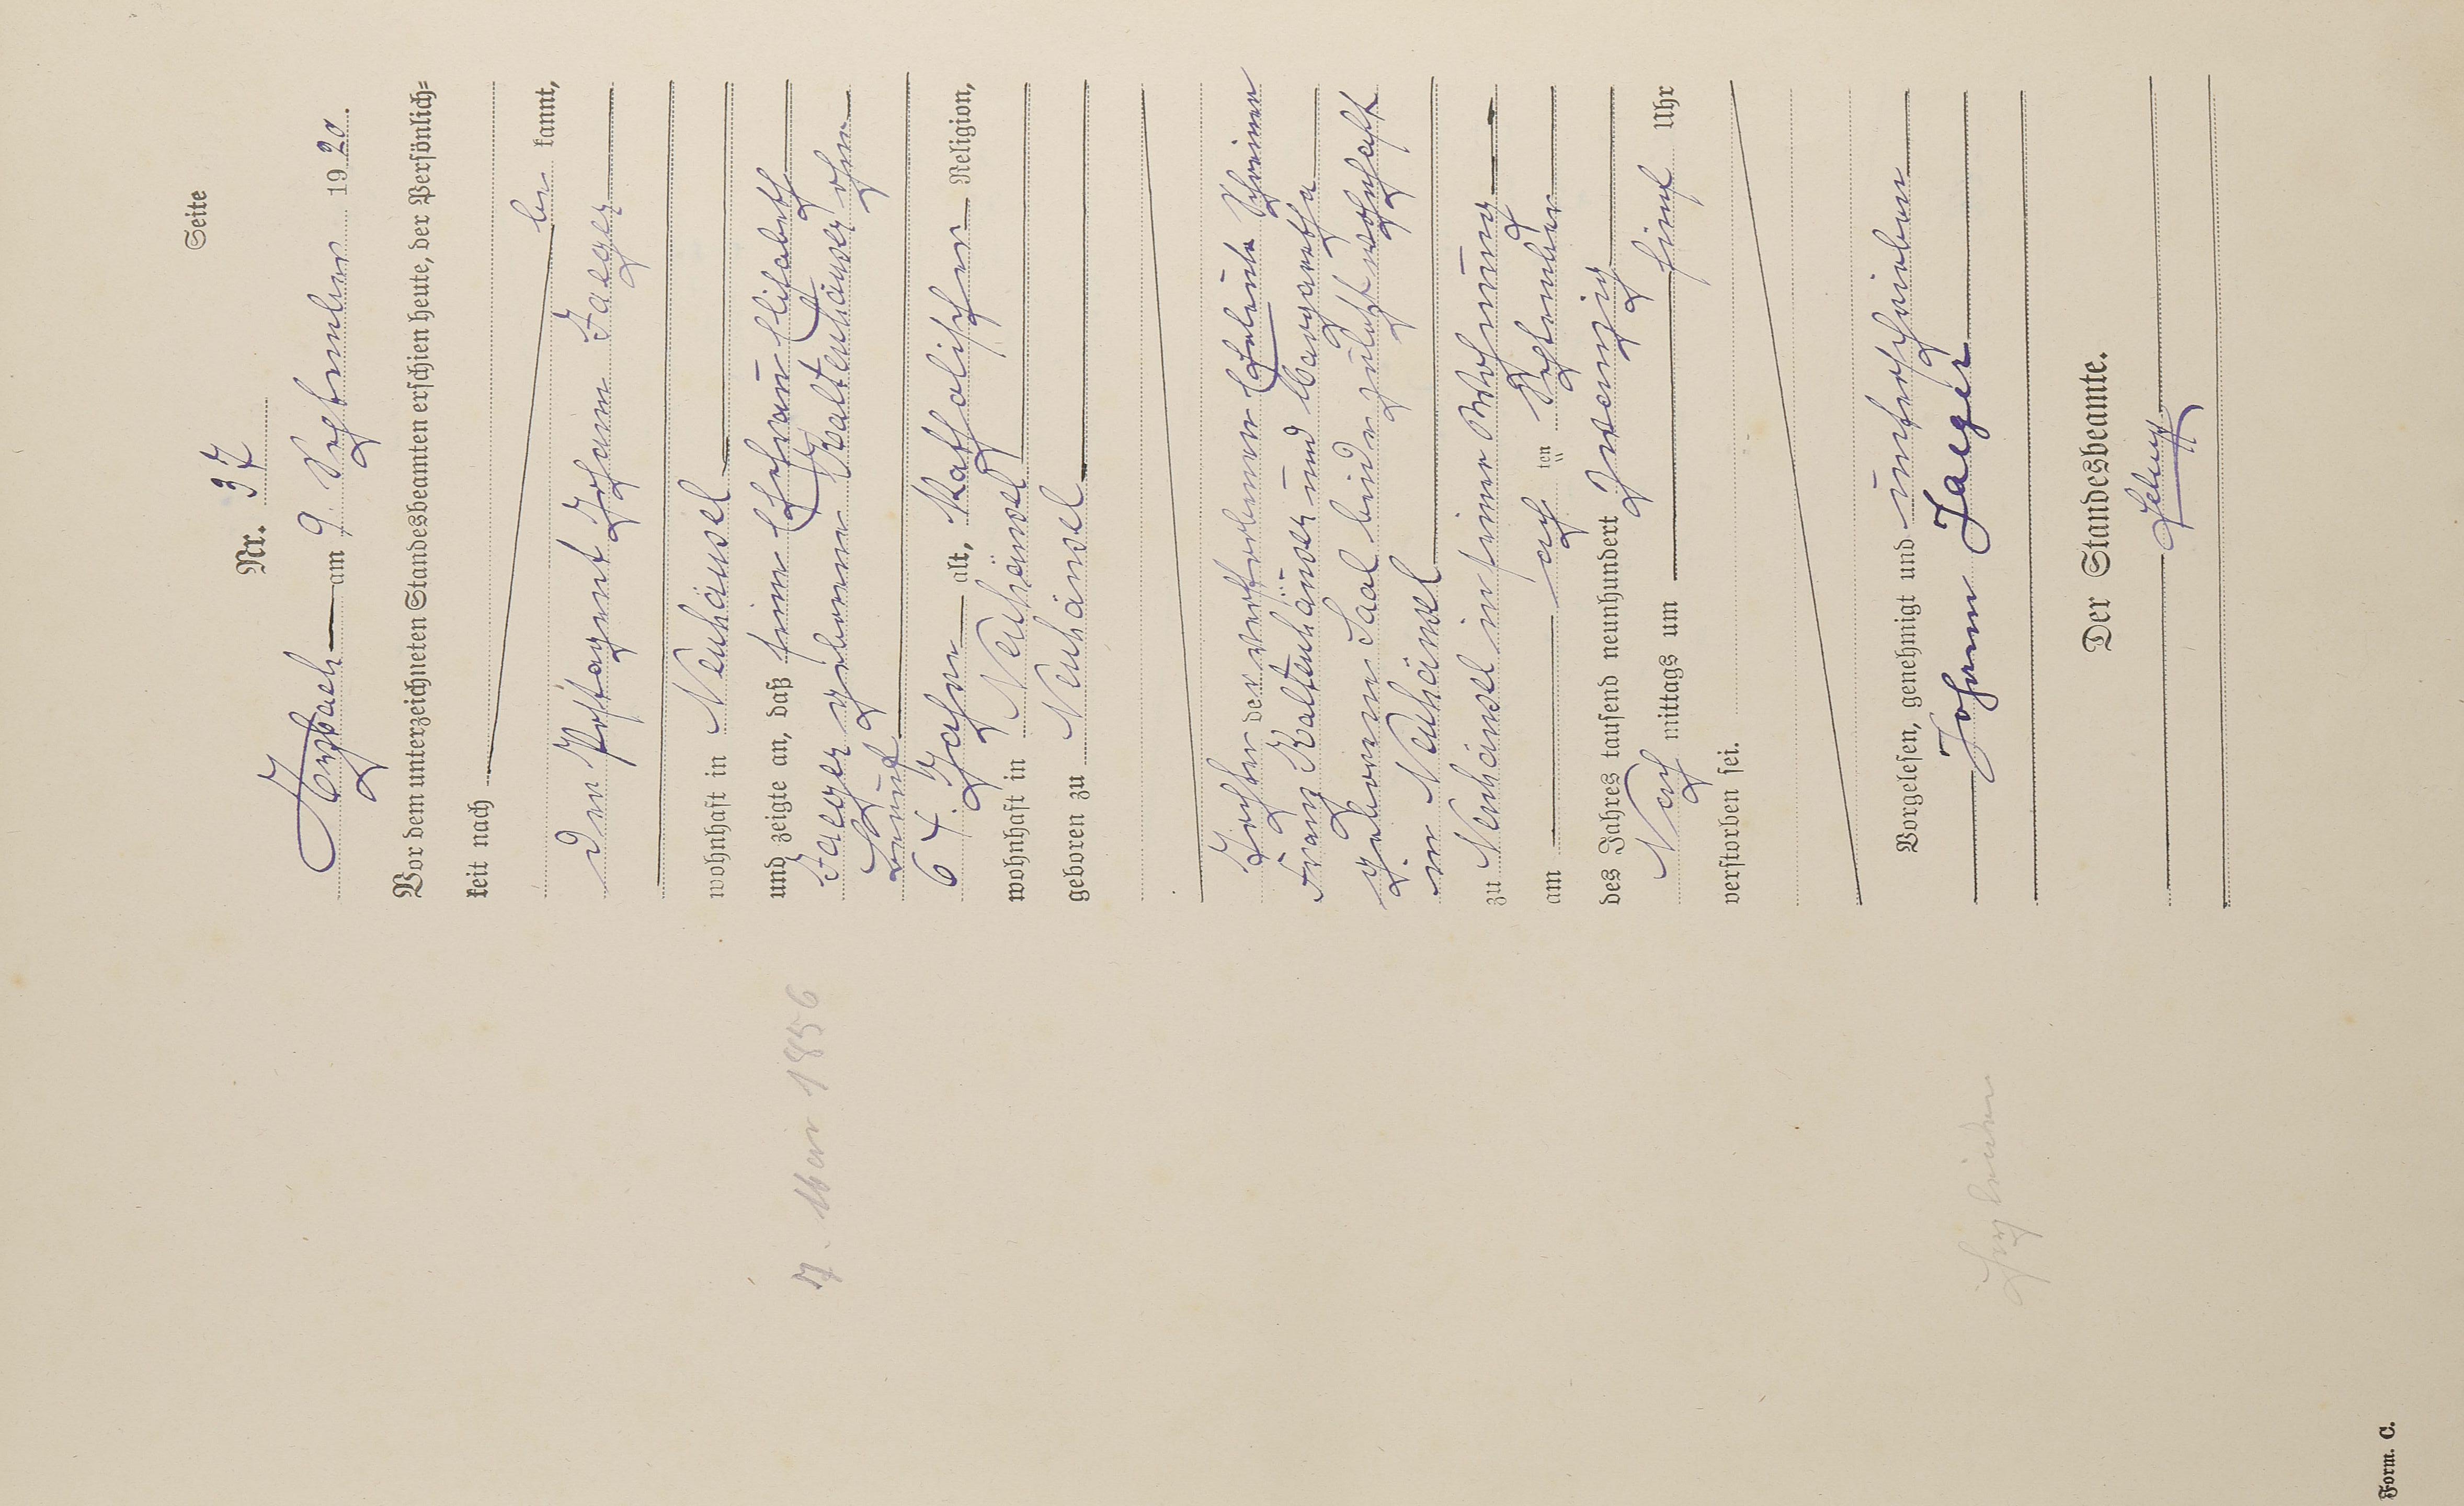 Seite
Nr. 37
am 9. September 1920.
Vor dem unterzeichneten Standesbeamten erschien heute, der Persönlich=
keit nach
be kannt,
der Postagent Johann Jaeger
wohnhaft in Neuhäusel
und zeigte an, daß seine Ehefrau Elisabeth
Jaeger geborene Kaltenhäuser ohne
Beruf
64 Jahre alt, katholischer Religion,
wohnhaft in Neuhäusel
geboren zu Neuhäusel
7. März 1856
Tochter der verstorbenen Eheleute Schreiner
Franz Kaltenhäuser und Margaretha
geborene Saal beide zuletzt wohnhaft
in Neuhäusel
zu Neuhäusel in seiner Wohnung
am acht ten September
des Jahres tausend neunhundert zwanzig
Nach mittags um fünf Uhr
verstorben sei.
Vorgelesen, genehmigt und unterschrieben
Johann Jaeger
Der Standesbeamte.
Form. C.